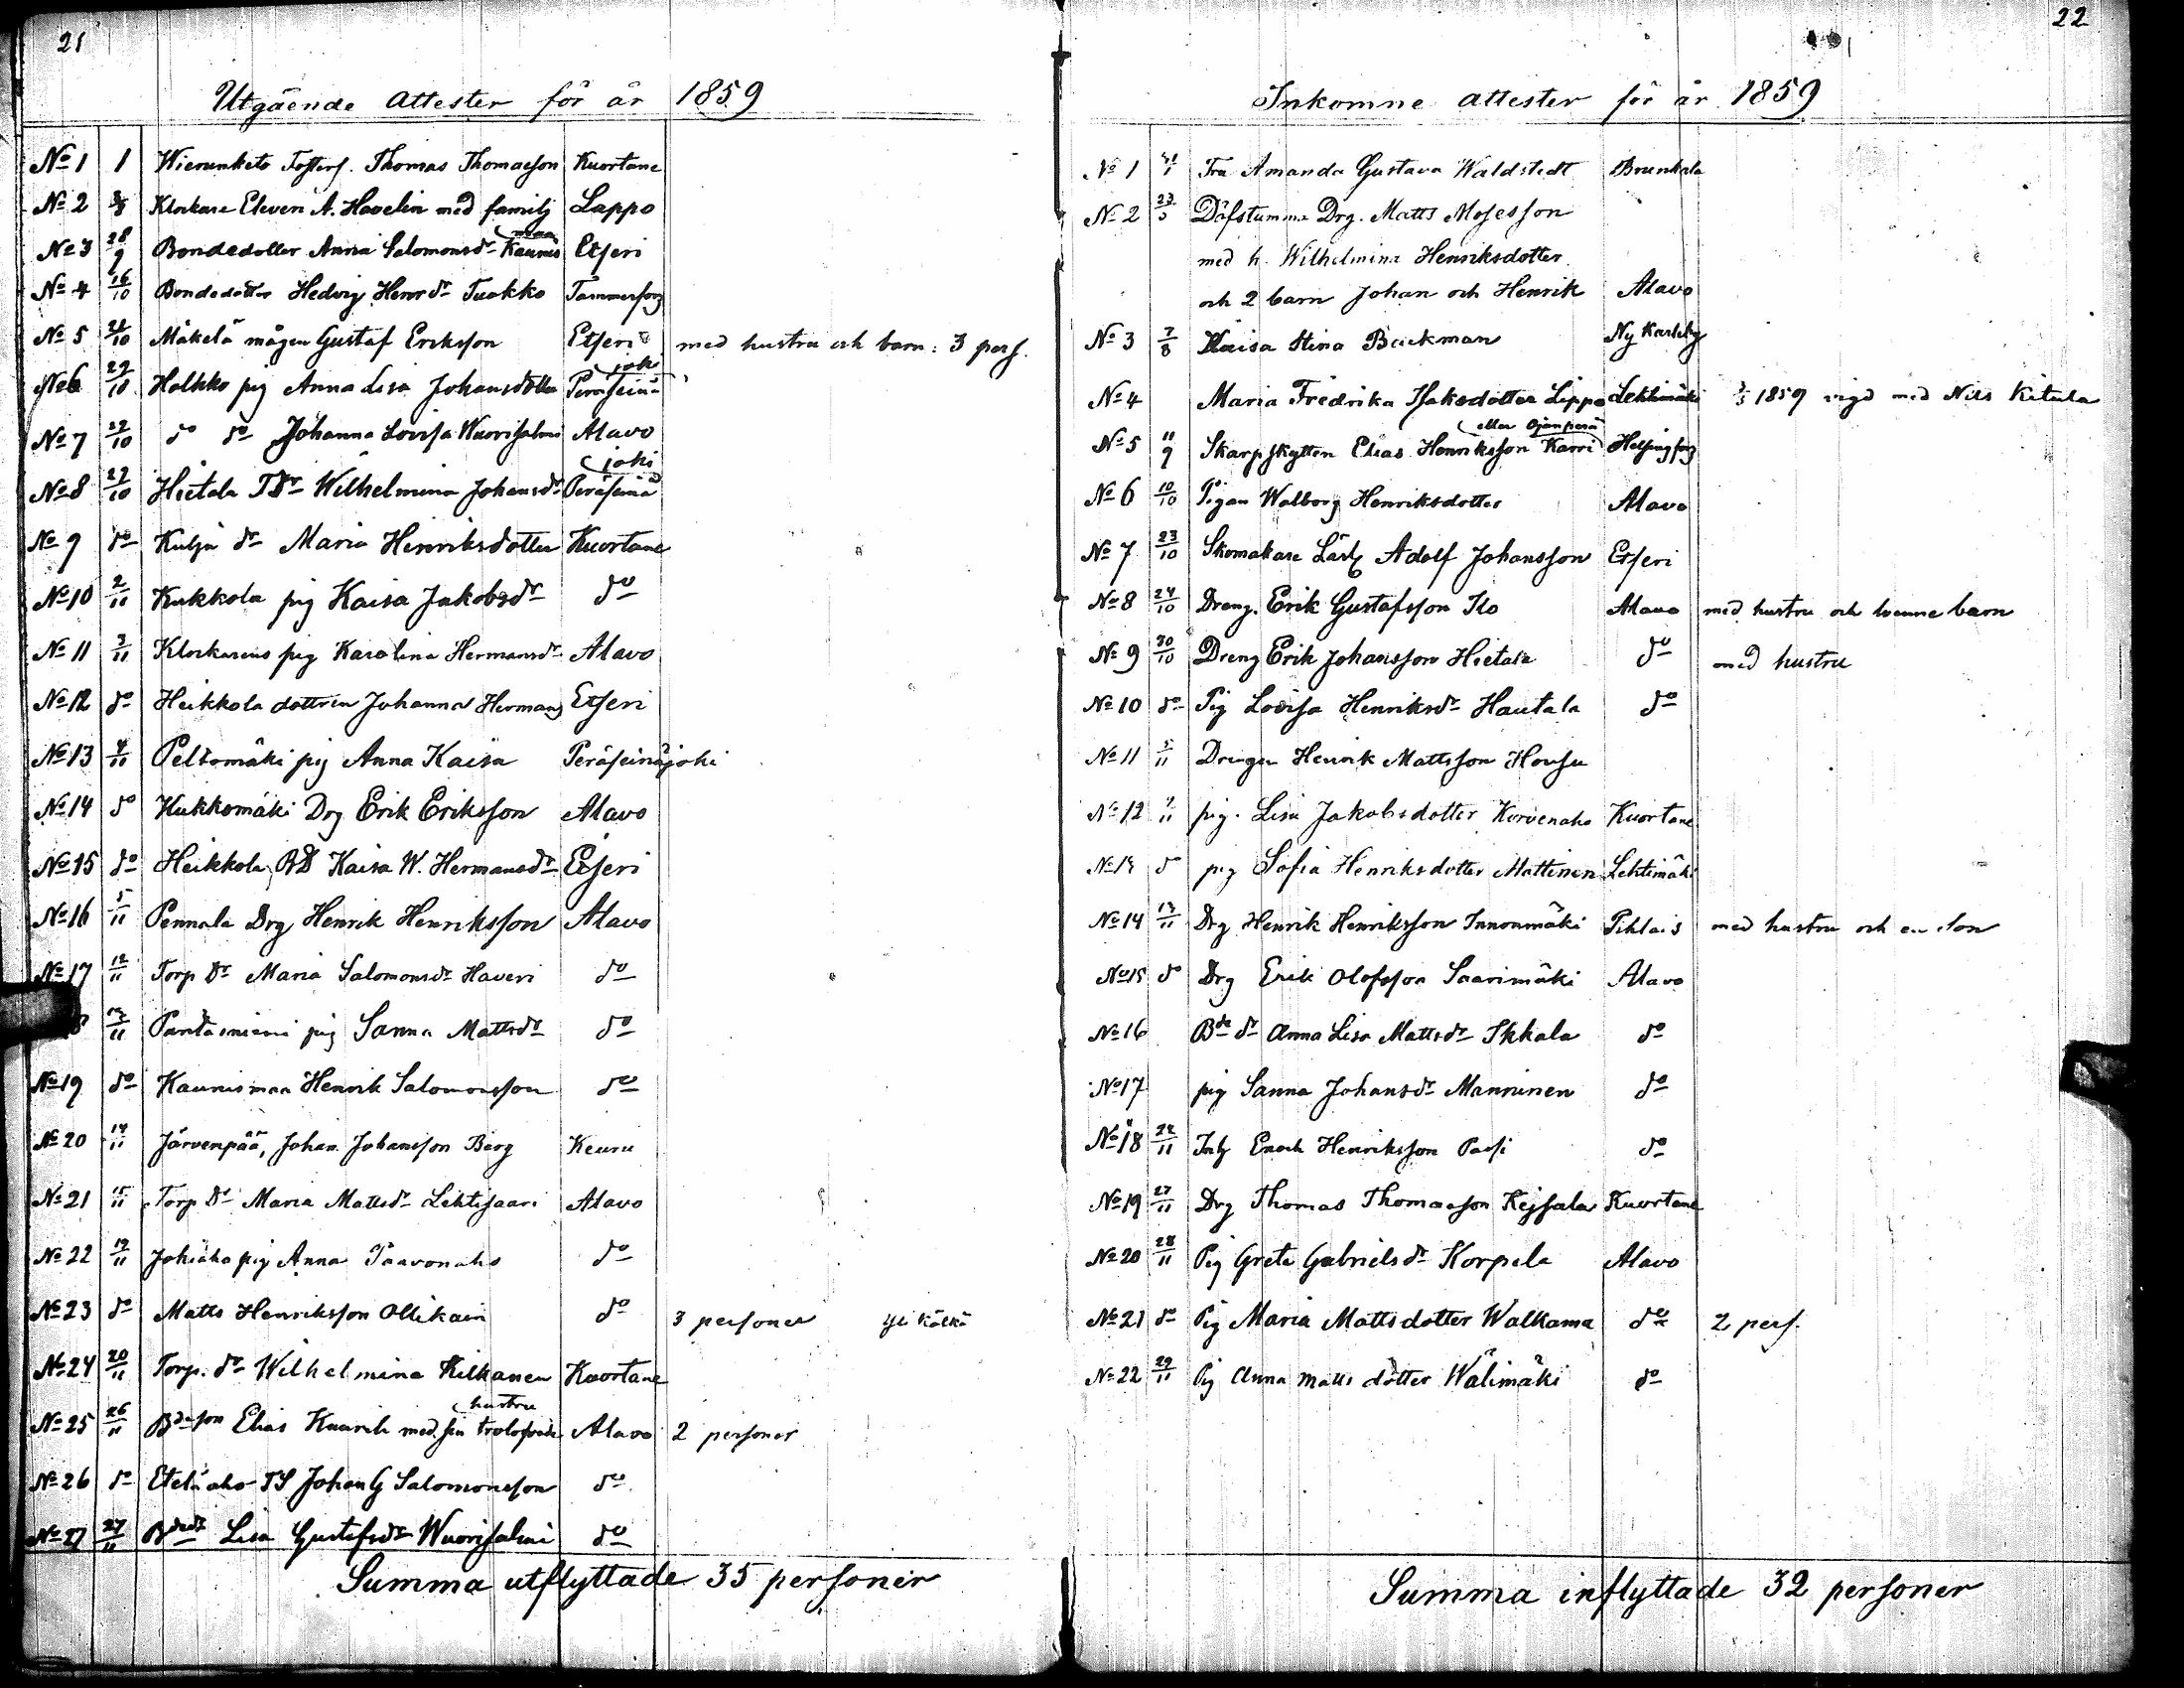 21
Utgående attester för år 1859
No 1 1 Wierunketo Thomas Thomasson Kuortane
No 2 Klockare Eleven A. Havelin med familj Lappo
maa
No 3 28/9 Bondedotter Anna Salomonsdr Kaunis Etseri
No 4 16/10 Bondedotter Hedvig Henrdr Tuokko Tammerfors
No 5 24/10 Mäkelä mågen Gustaf Eriksson Etseri med hustru och barn: 3 pers.
joki
No 6 29/10 Holkko pig Anna Lisa Johansdotter Peräseinä
No 7 29/10 do do Johanna Lovisa Wuorisalmi Alavo
joki
No 8 29/10 Hietala TDr Wilhelmina Johansdr Peräseinä
No 9 do Kulja dr Maria Henriksdotter Kuortane
No 10 2/11 Kukkola pig Kaisa Jakobsdr do
No 11 3/11 Klockarens pig Karolina Hermansdr Alavo
No 12 do Heikkola dottren Johanna Hermans Etseri
No 13 4/11 Peltomäki pig Anna Kaisa Peräseinäjoki
No 14 do Kukkomäki Drg Erik Eriksson Alavo
No 15 do Heikkola BD Kaisa W. Hermansdr Etseri
No 16 5/11 Pennala Drg Henrik Henriksson Alavo
No 17 12/11 Torp Dr Maria Salomonsdr Haveri do
8 13/11 pig Sanna Mattsdr do
No 19 do Kaunismaa Henrik Salomonsson do
No 20 14/11 Järvenpää, Johan Johansson Berg Keuru
No 21 15/11 Torp Dr Maria Mattsdr Lehtisaari Alavo
No 22 19/11 Johiaho pig Anna Paavonaho do
No 23 do Matts Henriksson Ollikain do 3 personer Yli kölkä
No 24 20/11 Torp. dr Wilhelmina Kilkanen Kuortane
hustru
No 25 26/11 Bdeson Elias Kaarik med sin trolofvade Alavo 2 personer
No 26 do Eteläaho TS Johan G Salomonsson do
No 27 27/11 Bdedr Lisa Gustafsdr Wuorisalmi do
Summa utflyttade 35 personer
22
Inkomne attester för år 1859
No 1 31/1 Fru Amanda Gustava Waldstedt Brunkala
No 2 23/5 Döfstumme Drg. Matts Mosesson
med h. Wilhelmina Henriksdotter
och 2 barn Johan och Henrik Alavo
No 3 7/8 Kaisa Stina Backman Ny Karleby
No 4 Maria Fredrika Isaksdotter Lippo Lehtimäki 1859 vigd med Nils Kitula
eller Ojanperä
No 5 11/9 Skarpskytten Elias Henriksson Karri Helsingfors
No 6 10/10 Pigan Walborg Henriksdotter Alavo
No 7 23/10 Skomakare Lärl Adolf Johansson Etseri
No 8 24/10 Dreng. Erik Gustafsson Ilo Alavo med hustru och tvenne barn
No 9 30/10 Dreng Erik Johansson Hietala do med hustru
No 10 do Pig Lovisa Henriksdr Hautala do
No 11 5/11 Drengen Henrik Mattsson Housu
No 12 9/11 pig. Lisa Jakobsdotter Korvenaho Kuortane
No 13 do pig Sofia Henriksdotter Mattinen Lehtimäki
No 14 13/11 Drg Henrik Henriksson Innonmäki Pihlais med hustru och en son
No 15 do Drg Erik Olofsson Saarimäki Alavo
No 16 Bde dr Anna Lisa Mattsdr Ikkala do
No 17 pig Sanna Johansdr Manninen do
No 18 22/11 Inh Enoch Henriksson Passi do
No 19 27/11 Drg Thomas Thomasson Kejsala Kuortane
No 20 28/11 Pig Greta Gabrielsdr Korpela Alavo
No 21 do Pig Maria Mattsdotter Walkama do 2 pers.
No 22 29/11 Pig Anna Matts dotter Wälimäki do
Summa inflyttade 32 personer